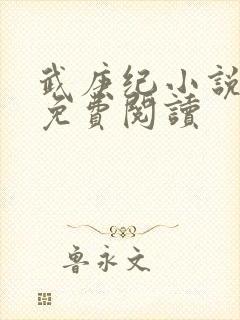 武庚纪小說
免費閱讀
鲁永文